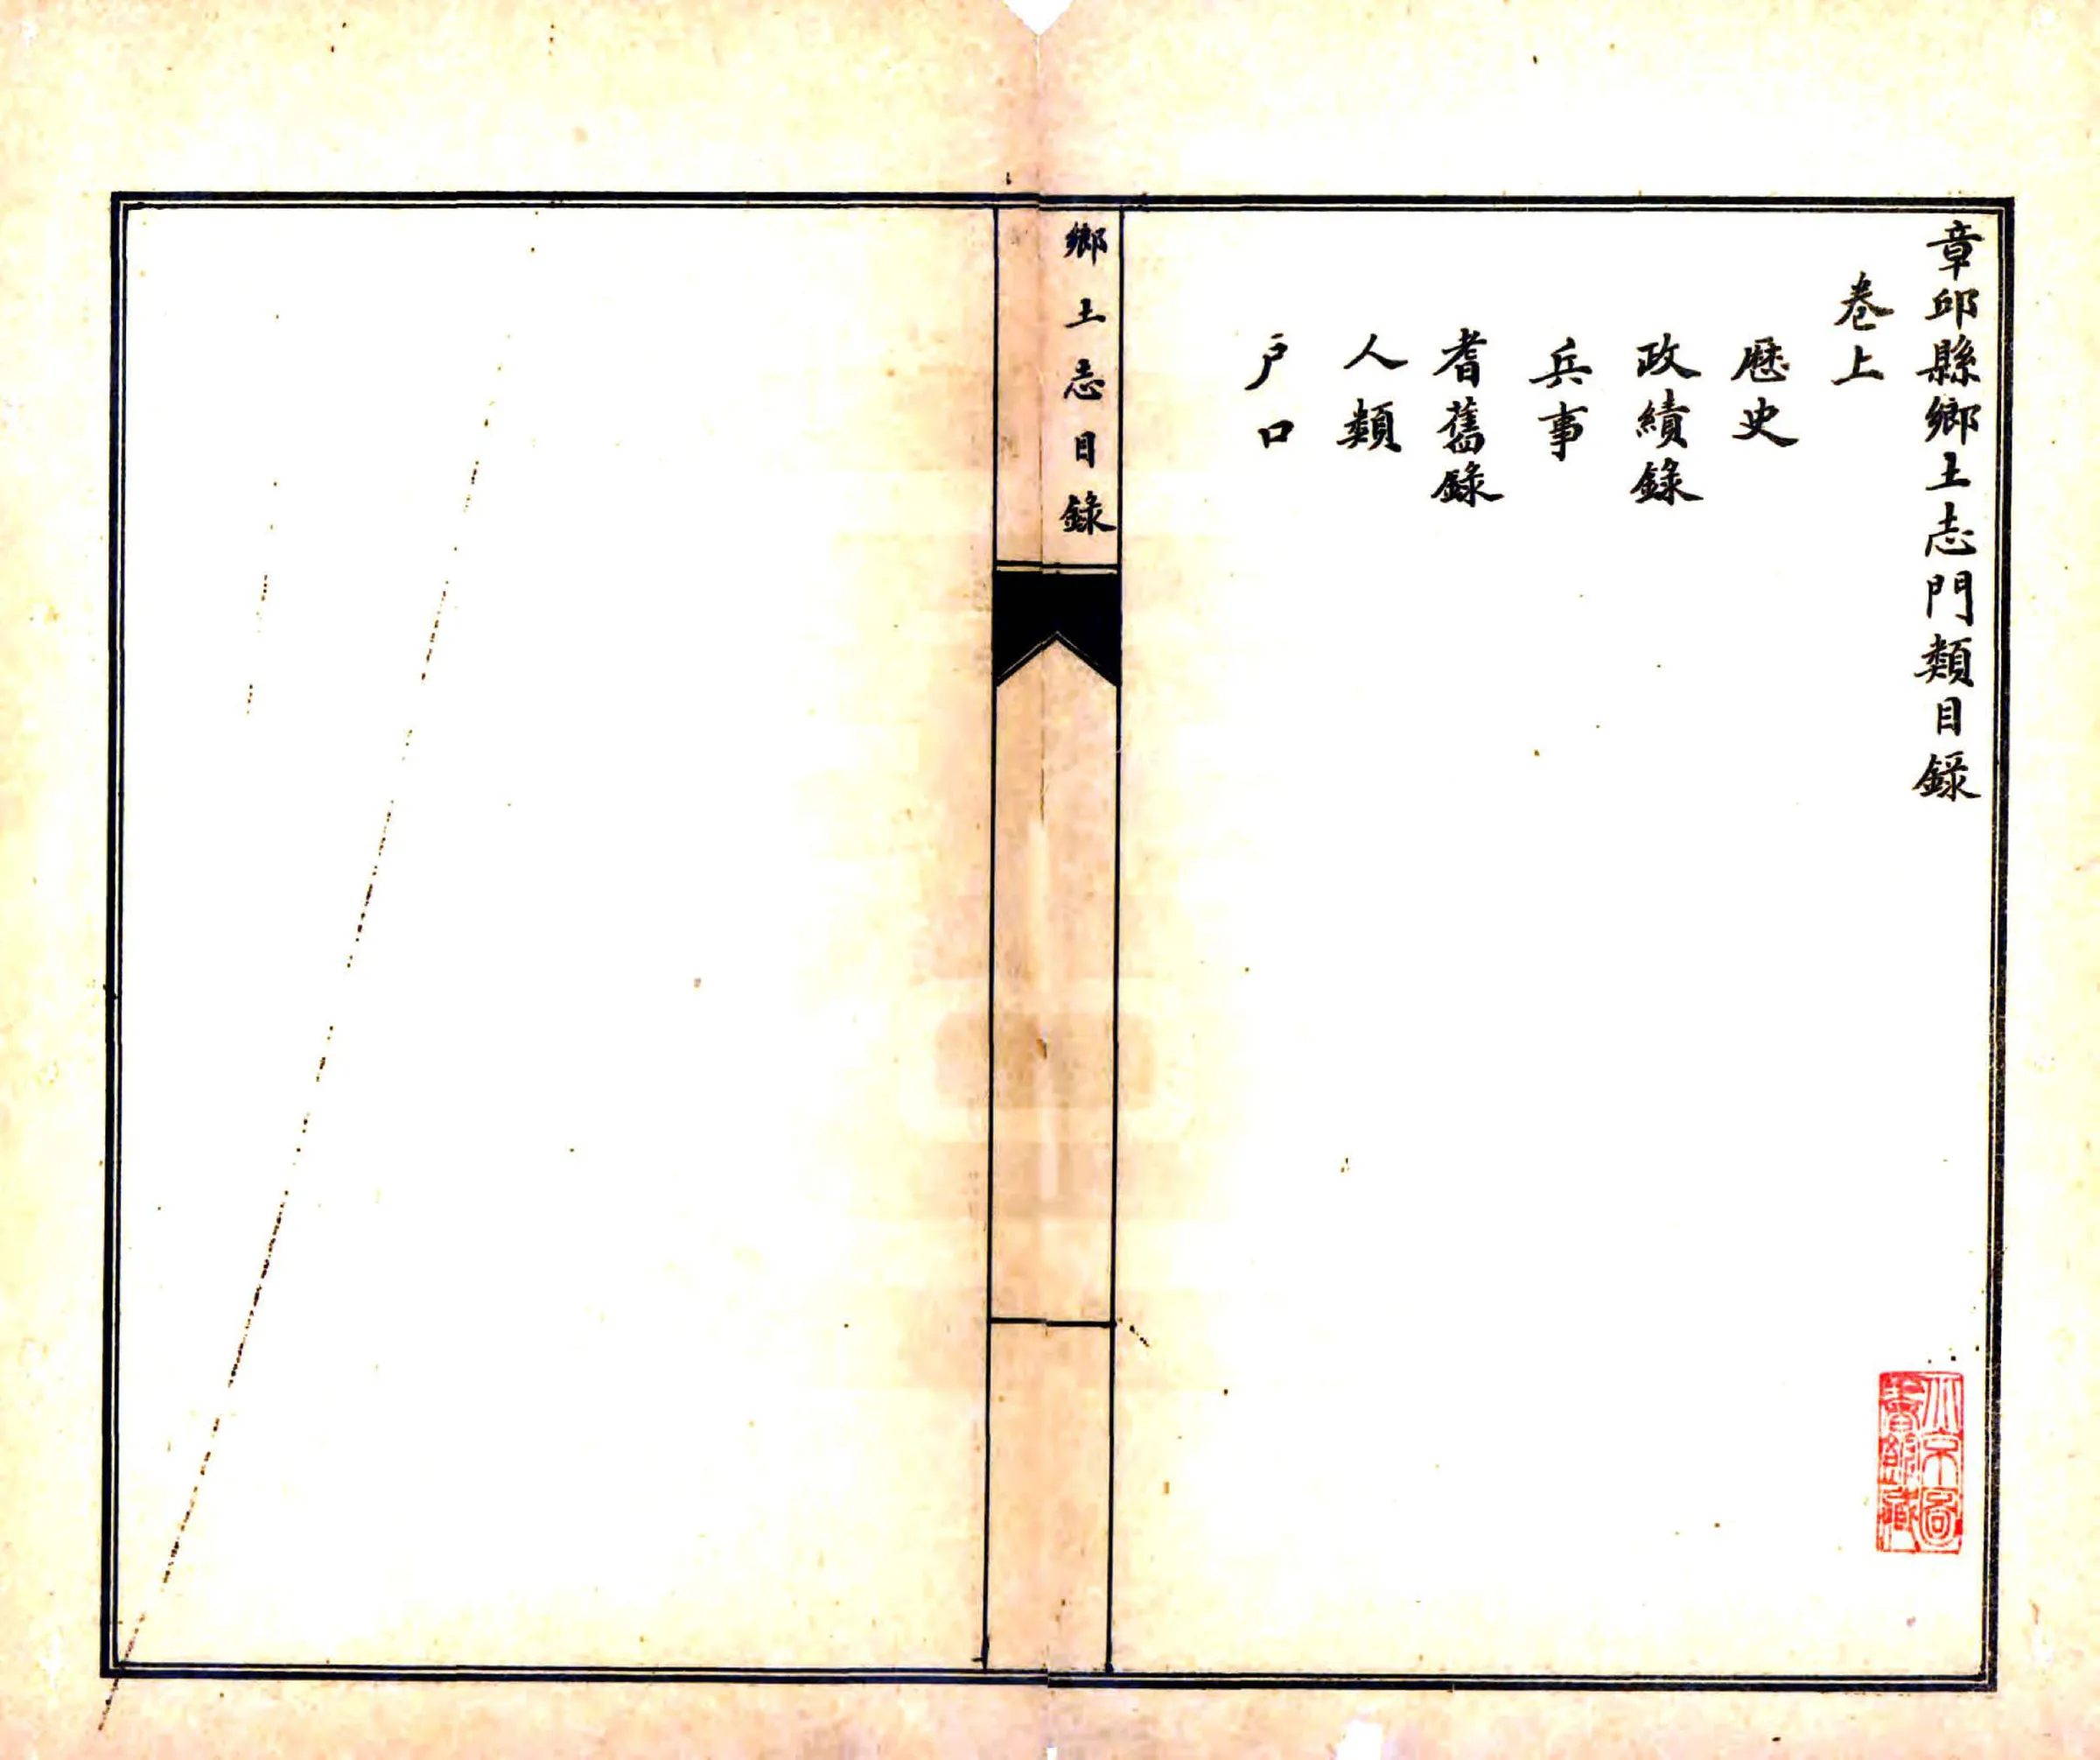 章邱縣鄉土志門類目錄
卷上
歷史
政績錄
兵事
耆舊錄
人類
戶口
鄉土志目錄
京圖
書館藏